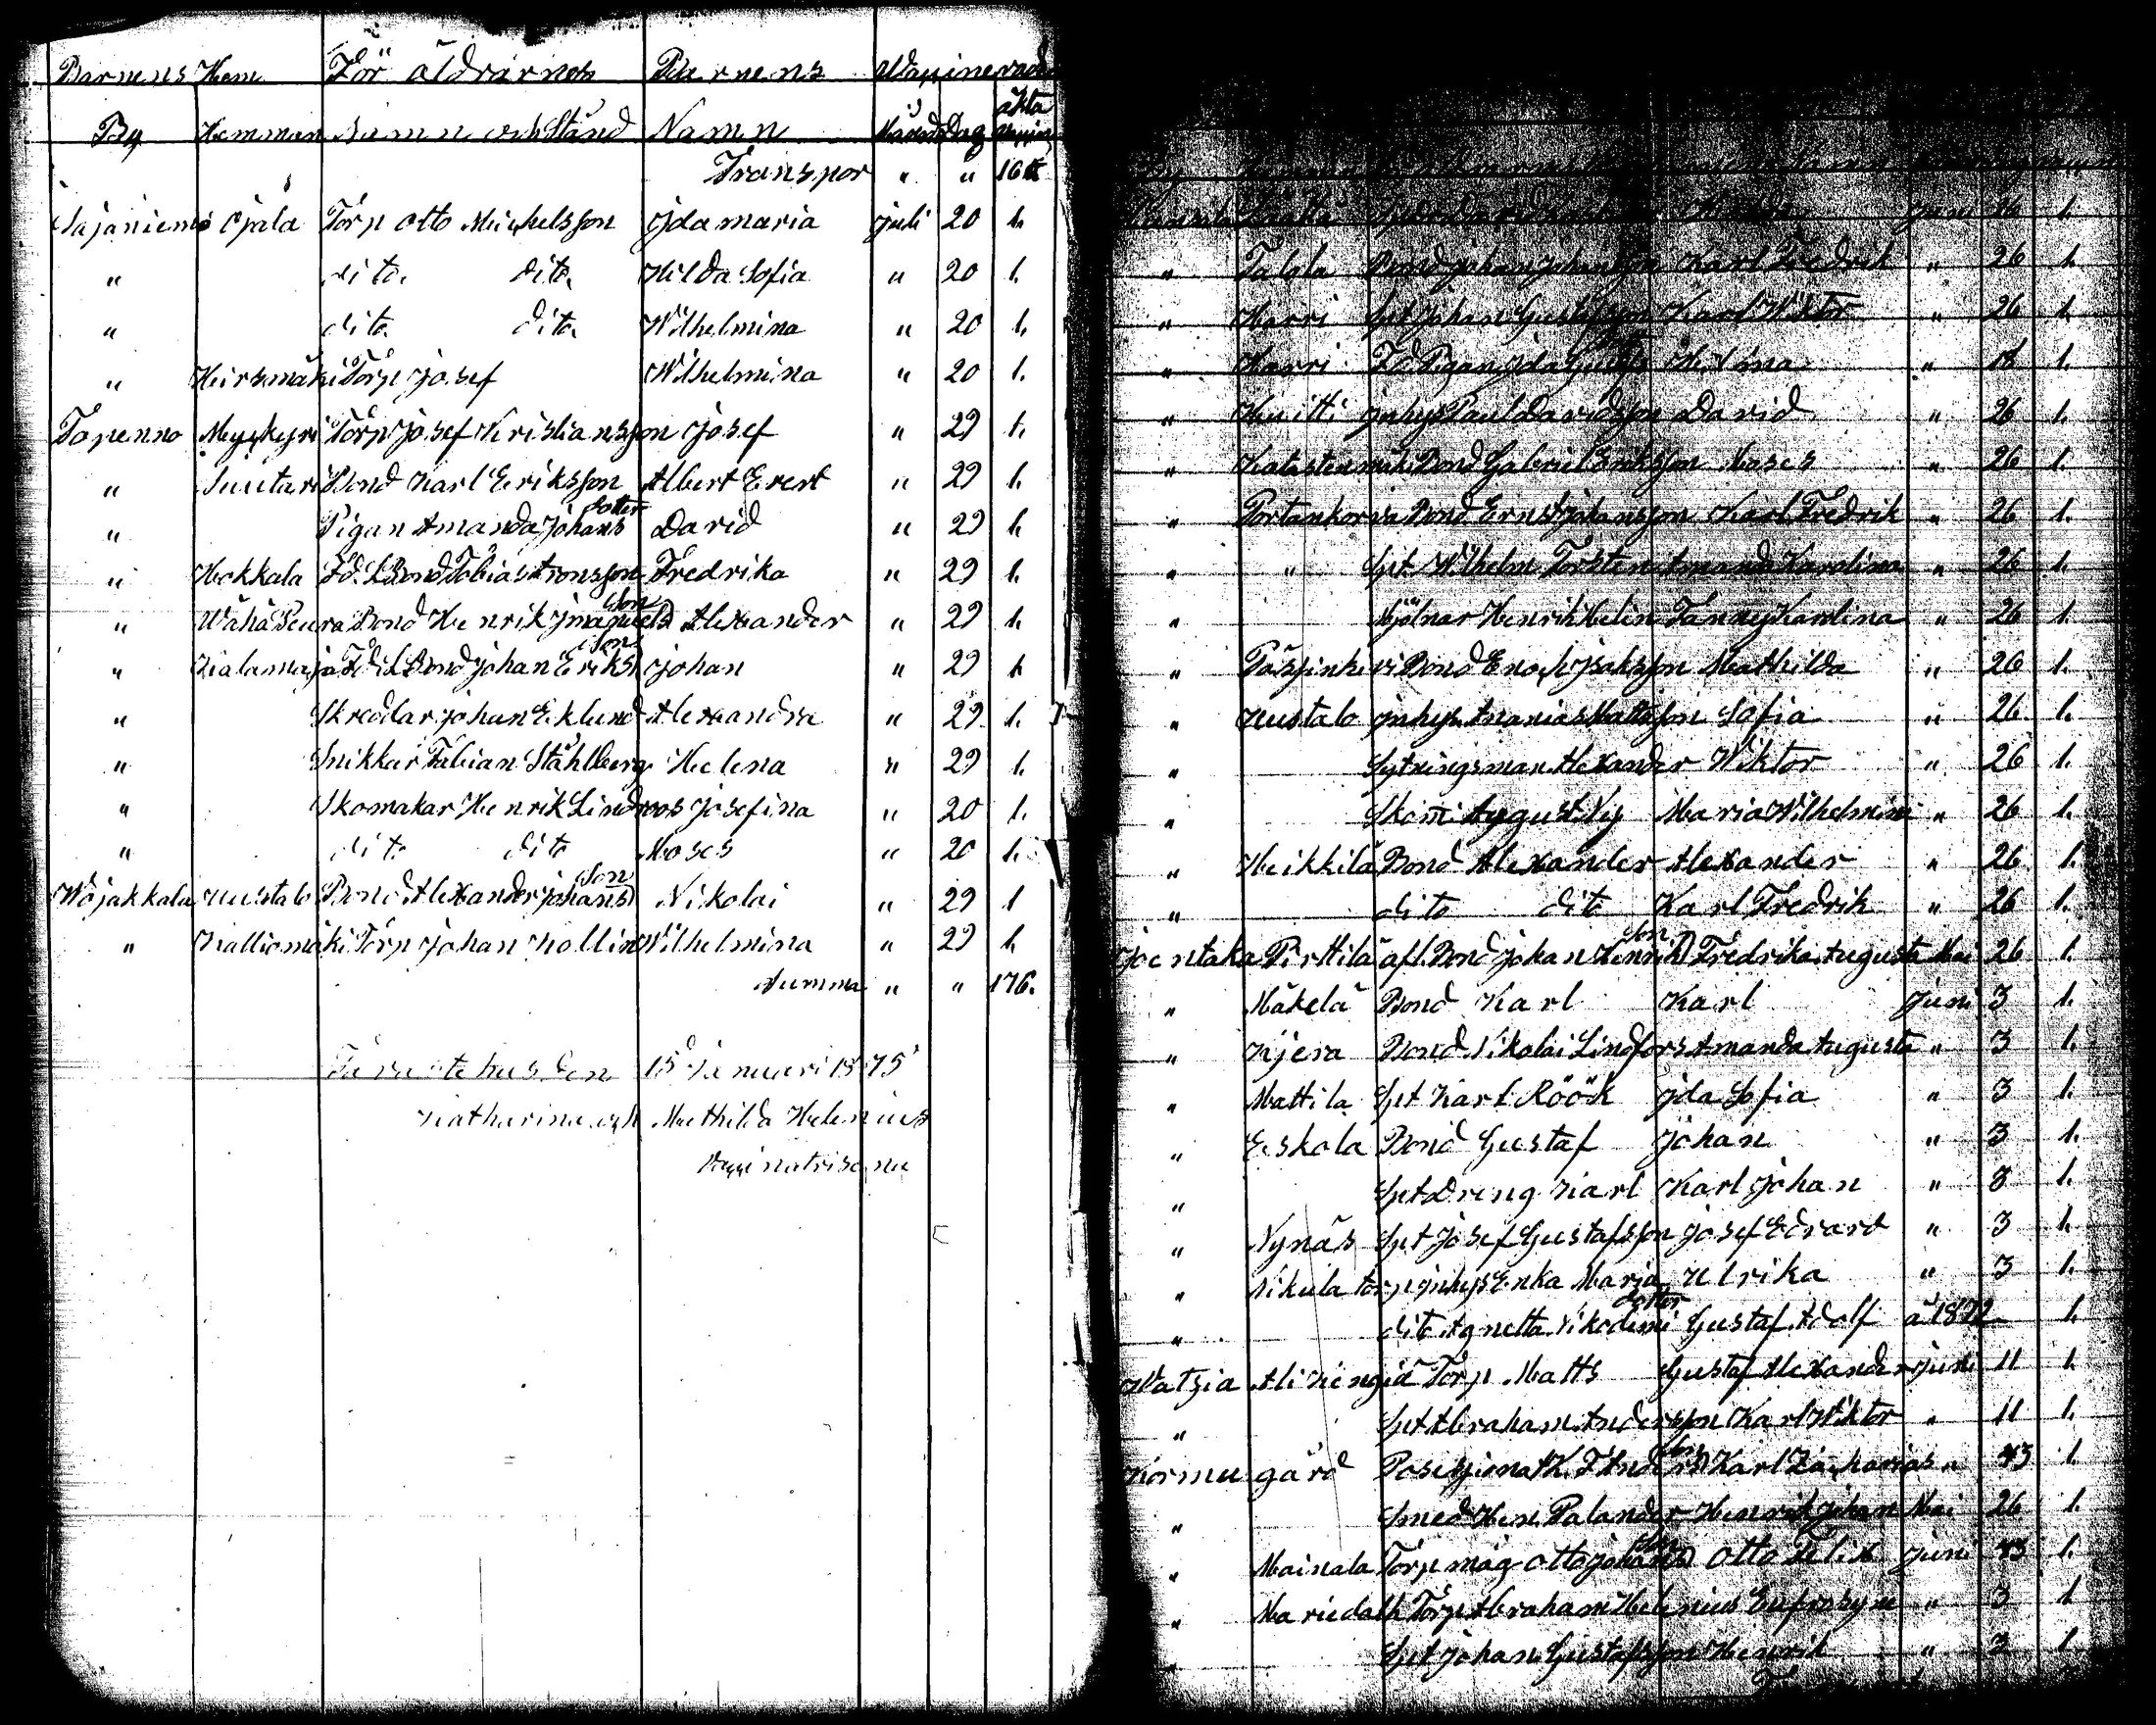 Barnens Hem För äldrarnes Barnens Waxinerade
By Hemman namn och Stånd Namn Månad Dag äkta
Transpor " " 160
Sajaniemi Ojala Torp Otto Michelsson Ida Maria Juli 20 1.
" dito. dito. Hilda Sofia " 20 1.
" dito dito. Wilhelmina " 20 1.
" Hirsmäki Torp Josef Wilhelmina " 20 1.
Topenno Myykyri Torp Josef Kristiansson Josef " 29 1.
" Suutari Bond Karl Eriksson Albert Evert " 29 1.
" Pigan Amanda Johans dotter David " 29 1.
" Hokkala Fd. Bond Tobias Aronsson Fredrika " 29 1.
" Wähä Peura Bond Henrik Imanuels son Alexander " 29 1.
" Kalamaja Fd Bond Johan Eriks son Johan " 29 1
" Skreddar Johan Eklund Alexandra " 29. 1.
" Snikkar Fabian Ståhlberg Helena " 29 1.
" Skomakar Henrik Lindroos Josefina " 20 1.
" dito dito Moses " 20 1.
Wojakkala Uustalo Bond Alexander Johans son Nikolai " 29 1
" Kalliomäki Torp Johan Kollin Wilhelmina " 29 1.
Summa " " 176.
Tavastehus den 15 Januari 1875
Katharina och Mathilda Helenius
" Talola Bond Johan Johansson Karl Fredrik " 26 1.
" Harri Spt Johan Gustafsson Karl Wiktor " 26 1.
" Harri Fd Pigan Ida Hilma " 1.
" Huitti Inhys Paul Davidsson David " 26 1.
" Bond Gabriel Eriksson Moses " 26 1.
" Portankorva Bond Ernst Johansson Karl Fredrik " 26 1.
" " Spt. Wilhelm Torsten Amanda Karolina " 26 1.
" Mjölnar Henrik Helin Fanny Karolina " 26 1.
" Bond Enoch Isaksson Mathilda " 26 1.
" Uustalo Inhys. Ananias Mattsson Sofia " 26 1.
" Sytningsman Alexander Wiktor " 26 1.
" August Ny Maria Wilhelmina " 26 1.
" Heikkilä Bond Alexander Alexander " 26 1.
" dito dito Karl Fredrik " 26 1.
Joentaka Pirttilä afl. Bond Johan Henrik son Fredrika Augusta Mai 26 1.
" Mäkelä Bond Karl Karl Juni 3 1.
" Kjera Bond Nikolai Lindfors Amanda Augusta " 3 1.
" Mattila Spt Karl Röök Ida Sofia " 3 1.
" Eskola Bond Gustaf Johan " 3 1.
" Spt Dreng Karl Karl Johan " 3 1.
" Nynäs Spt Josef Gustafsson Josef Edvard " 3 1.
" Nikula torp Inhys Enka Maria Ulrika " 3 1.
" dito Agnetta Nikodemi dotter Gustaf Adolf å 1872 1.
Watsia Alikingiä Torp Matts Gustaf Alexander Juni 11 1.
" Spt Abraham Andersson Karl Wiktor " 11 1.
Kormu gård Possesionat K. F Anders son Karl Zacharias " 1.
" Smed Hen. Palander Henrik Johan Mai 26 1.
" Mainala Torp måg Otto Johans son Otto Felix Juni 1.
" Mariedahl Torp Abraham Helenius Eufrosyne " 3 1
Spt Johan Gustafsson Henrik " 3 1.